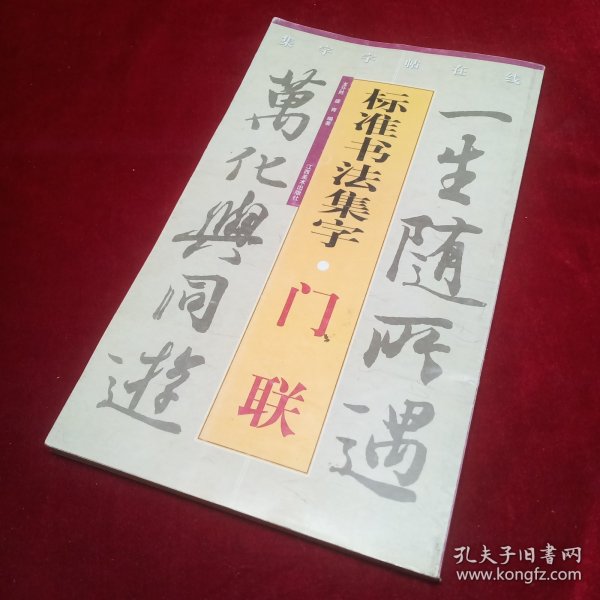 集字字帖在线
一生随所遇
萬化與同遊
标准书法集字·门联
编著
江西美术出版社
孔夫子旧书网
www.kongfz.com